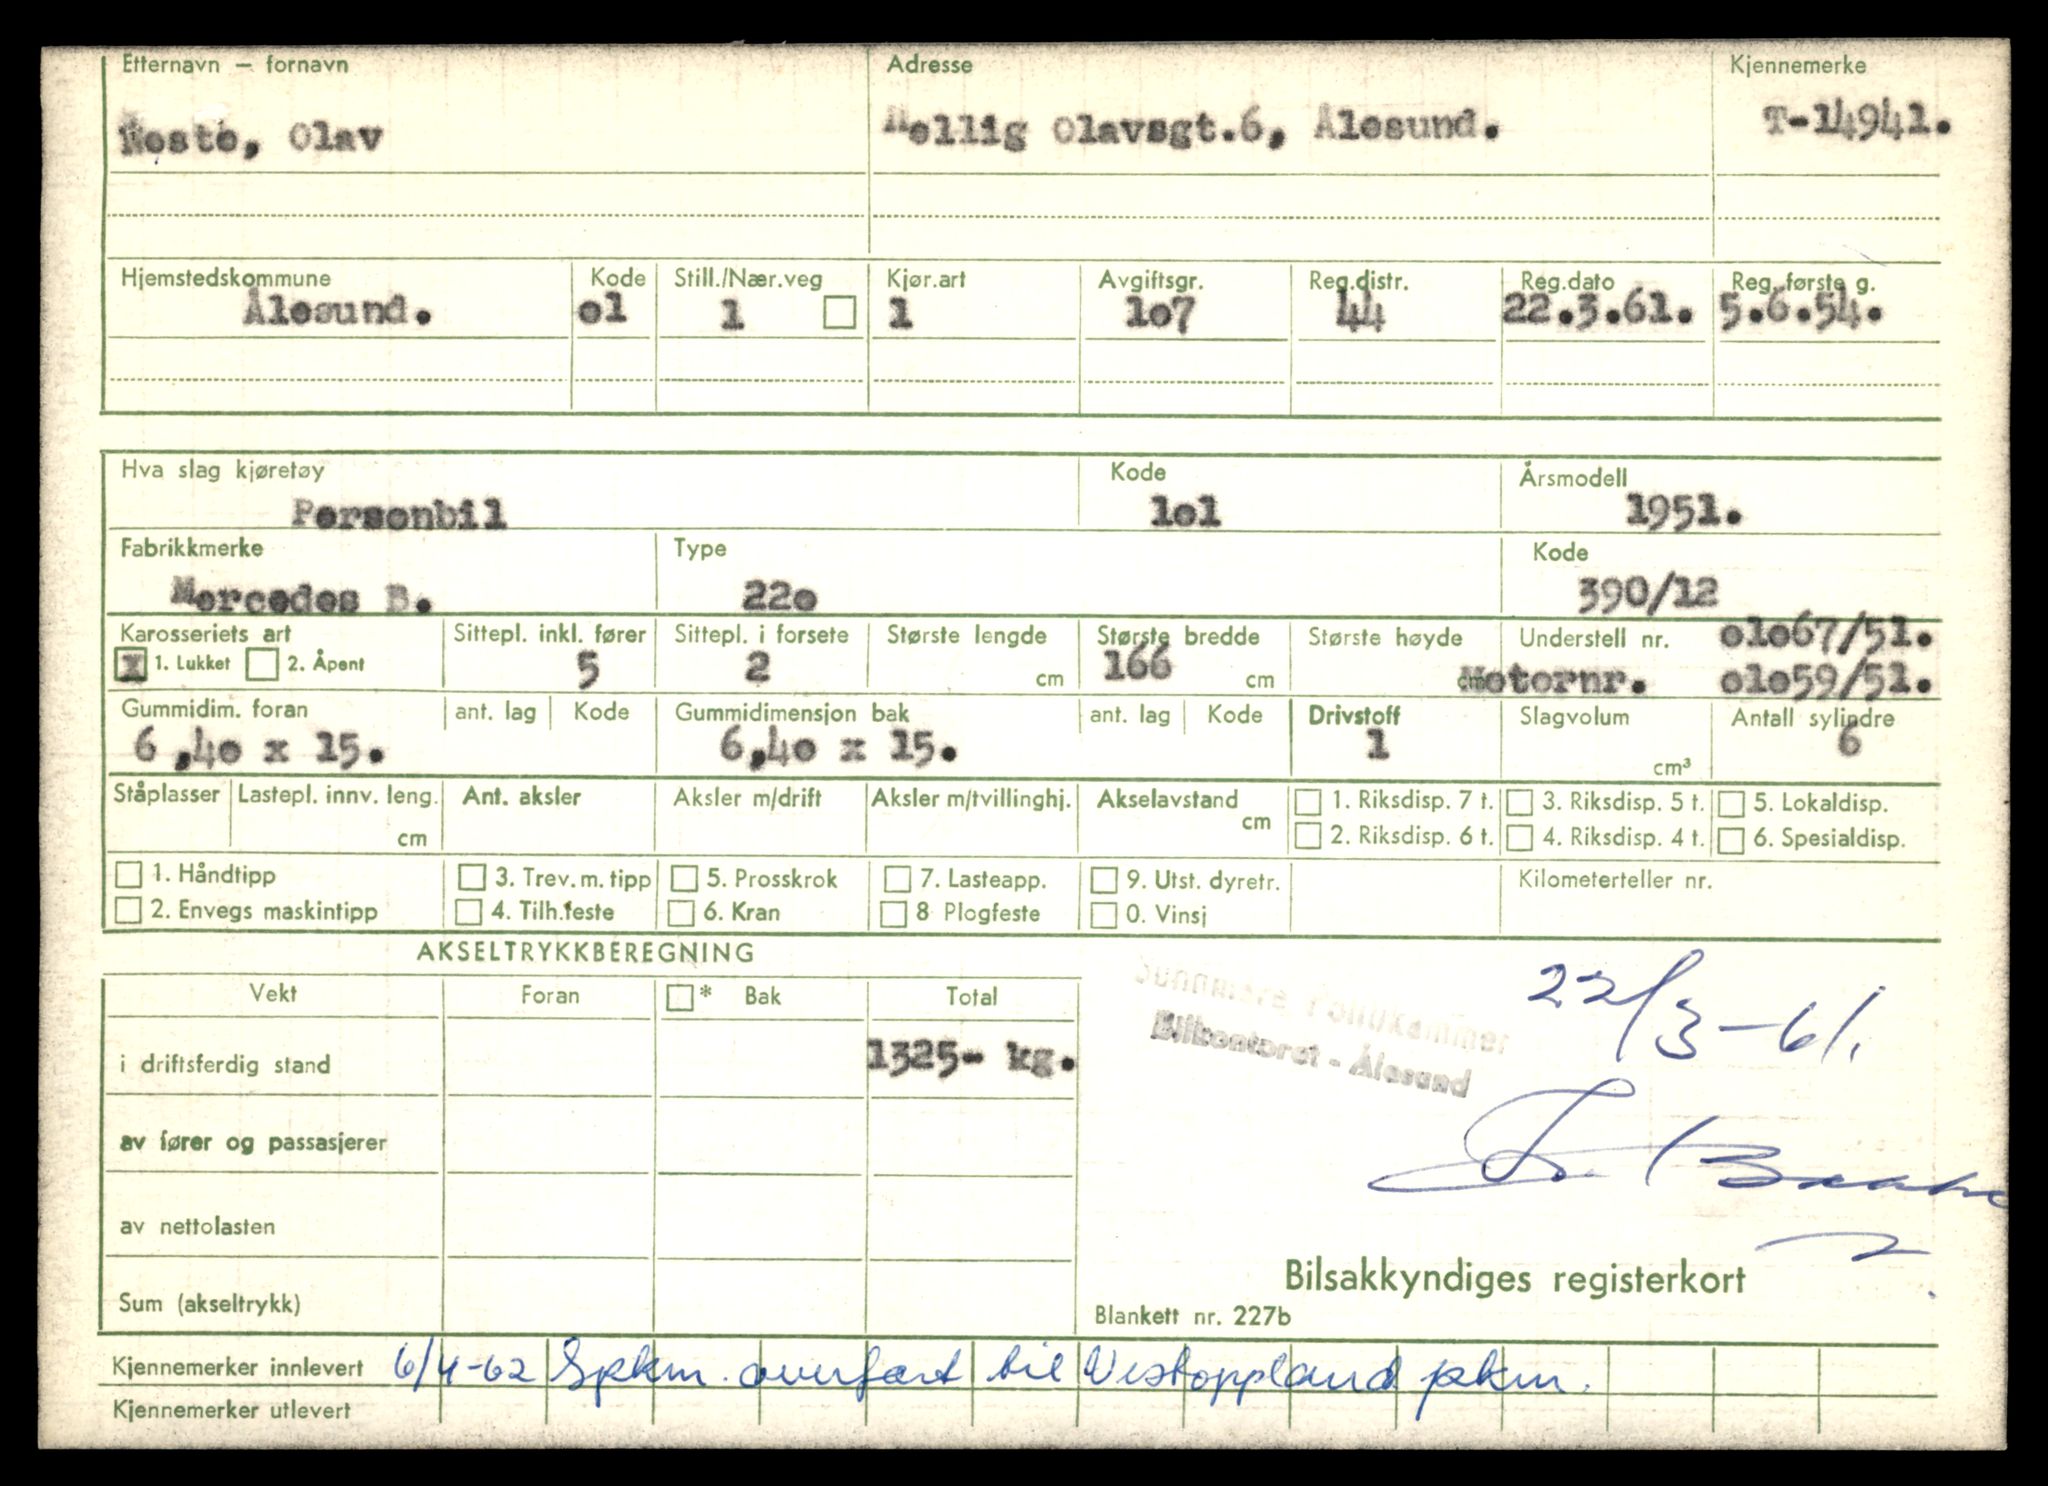 Etternavn – fornavn Adresse Kjennemerke
Neste, Olav Hellig Olavsgt.6, Ålesund. T-14941.
Hjemstedskommune Kode Still./Nær.veg Kjør.art Avgiftsgr. Reg.distr. Reg.dato Reg. første g.
Ålesund. o1 1 1 1o7 44 22.3.61. 5.6.54.
Hva slag kjøretøy Kode Årsmodell
Personbil 1o1 1951.
Fabrikkmerke Type Kode
Mercedes B. 22o 390/12
Karosseriets art Sittepl. inkl. fører Sittepl. i forsete Største lengde Største bredde Største høyde Understell nr. o1o67/51.
x 1. Lukket 2. Åpent 5 2 cm 166 cm cm Motornr. o1o59/51.
Gummidim. foran ant. lag Kode Gummidimensjon bak ant. lag Kode Drivstoff Slagvolum Antall sylindre
6,4o x 15. 6,4o x 15. 1 cm³ 6
Ståplasser Lastepl. innv. leng. cm Ant. aksler Aksler m/drift Aksler m/tvillinghj. Akselavstand cm 1. Riksdisp. 7 t. 3. Riksdisp. 5 t. 5. Lokaldisp.
2. Riksdisp. 6 t. 4. Riksdisp. 4 t. 6. Spesialdisp.
1. Håndtipp 3. Trev. m. tipp 5. Prosskrok 7. Lasteapp. 9. Utst. dyretr. Kilometerteller nr.
2. Envegs maskintipp 4. Tilh.feste 6. Kran 8 Plogfeste 0. Vinsj
AKSELTRYKKBEREGNING
Vekt Foran * Bak Total
i driftsferdig stand 1325- kg.
av fører og passasjerer
av nettolasten
Sum (akseltrykk)
Sunnmøre Politikammer
Bilkontoret - Ålesund
22/3-61.
Bilsakkyndiges registerkort
Blankett nr. 227b
Kjennemerker innlevert 6/4-62 Spkm. overført til Vestoppland pkm.
Kjennemerker utlevert